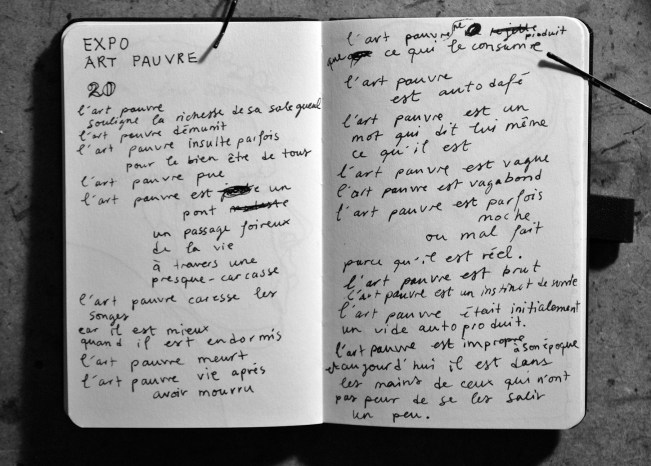 EXPO
ART PAUVRE
20
l'art pauvre
souligne la richesse de sa sale gueule
l'art pauvre démunit
l'art pauvre insulte parfois
pour le bien être de tous
l'art pauvre pue
l'art pauvre est un
pont
un passage foireux
de la vie
à travers une
presque-carcasse
l'art pauvre caresse les
songes
car il est mieux
quand il est endormis
l'art pauvre meurt
l'art pauvre vie après
avoir mourru
l'art pauvre ne produit
que ce qui le consume
l'art pauvre
est autodafé
l'art pauvre est un
mot qui dit lui même
ce qu'il est
l'art pauvre est vague
l'art pauvre est vagabond
l'art pauvre est parfois
moche
ou mal fait
parce qu'il est réel.
l'art pauvre est brut
l'art pauvre est un instinct de survie
l'art pauvre était initialement
un vide autoproduit.
l'art pauvre est impropre à son époque
et aujourd'hui il est dans
les mains de ceux qui n'ont
pas peur de se les salir
un peu.